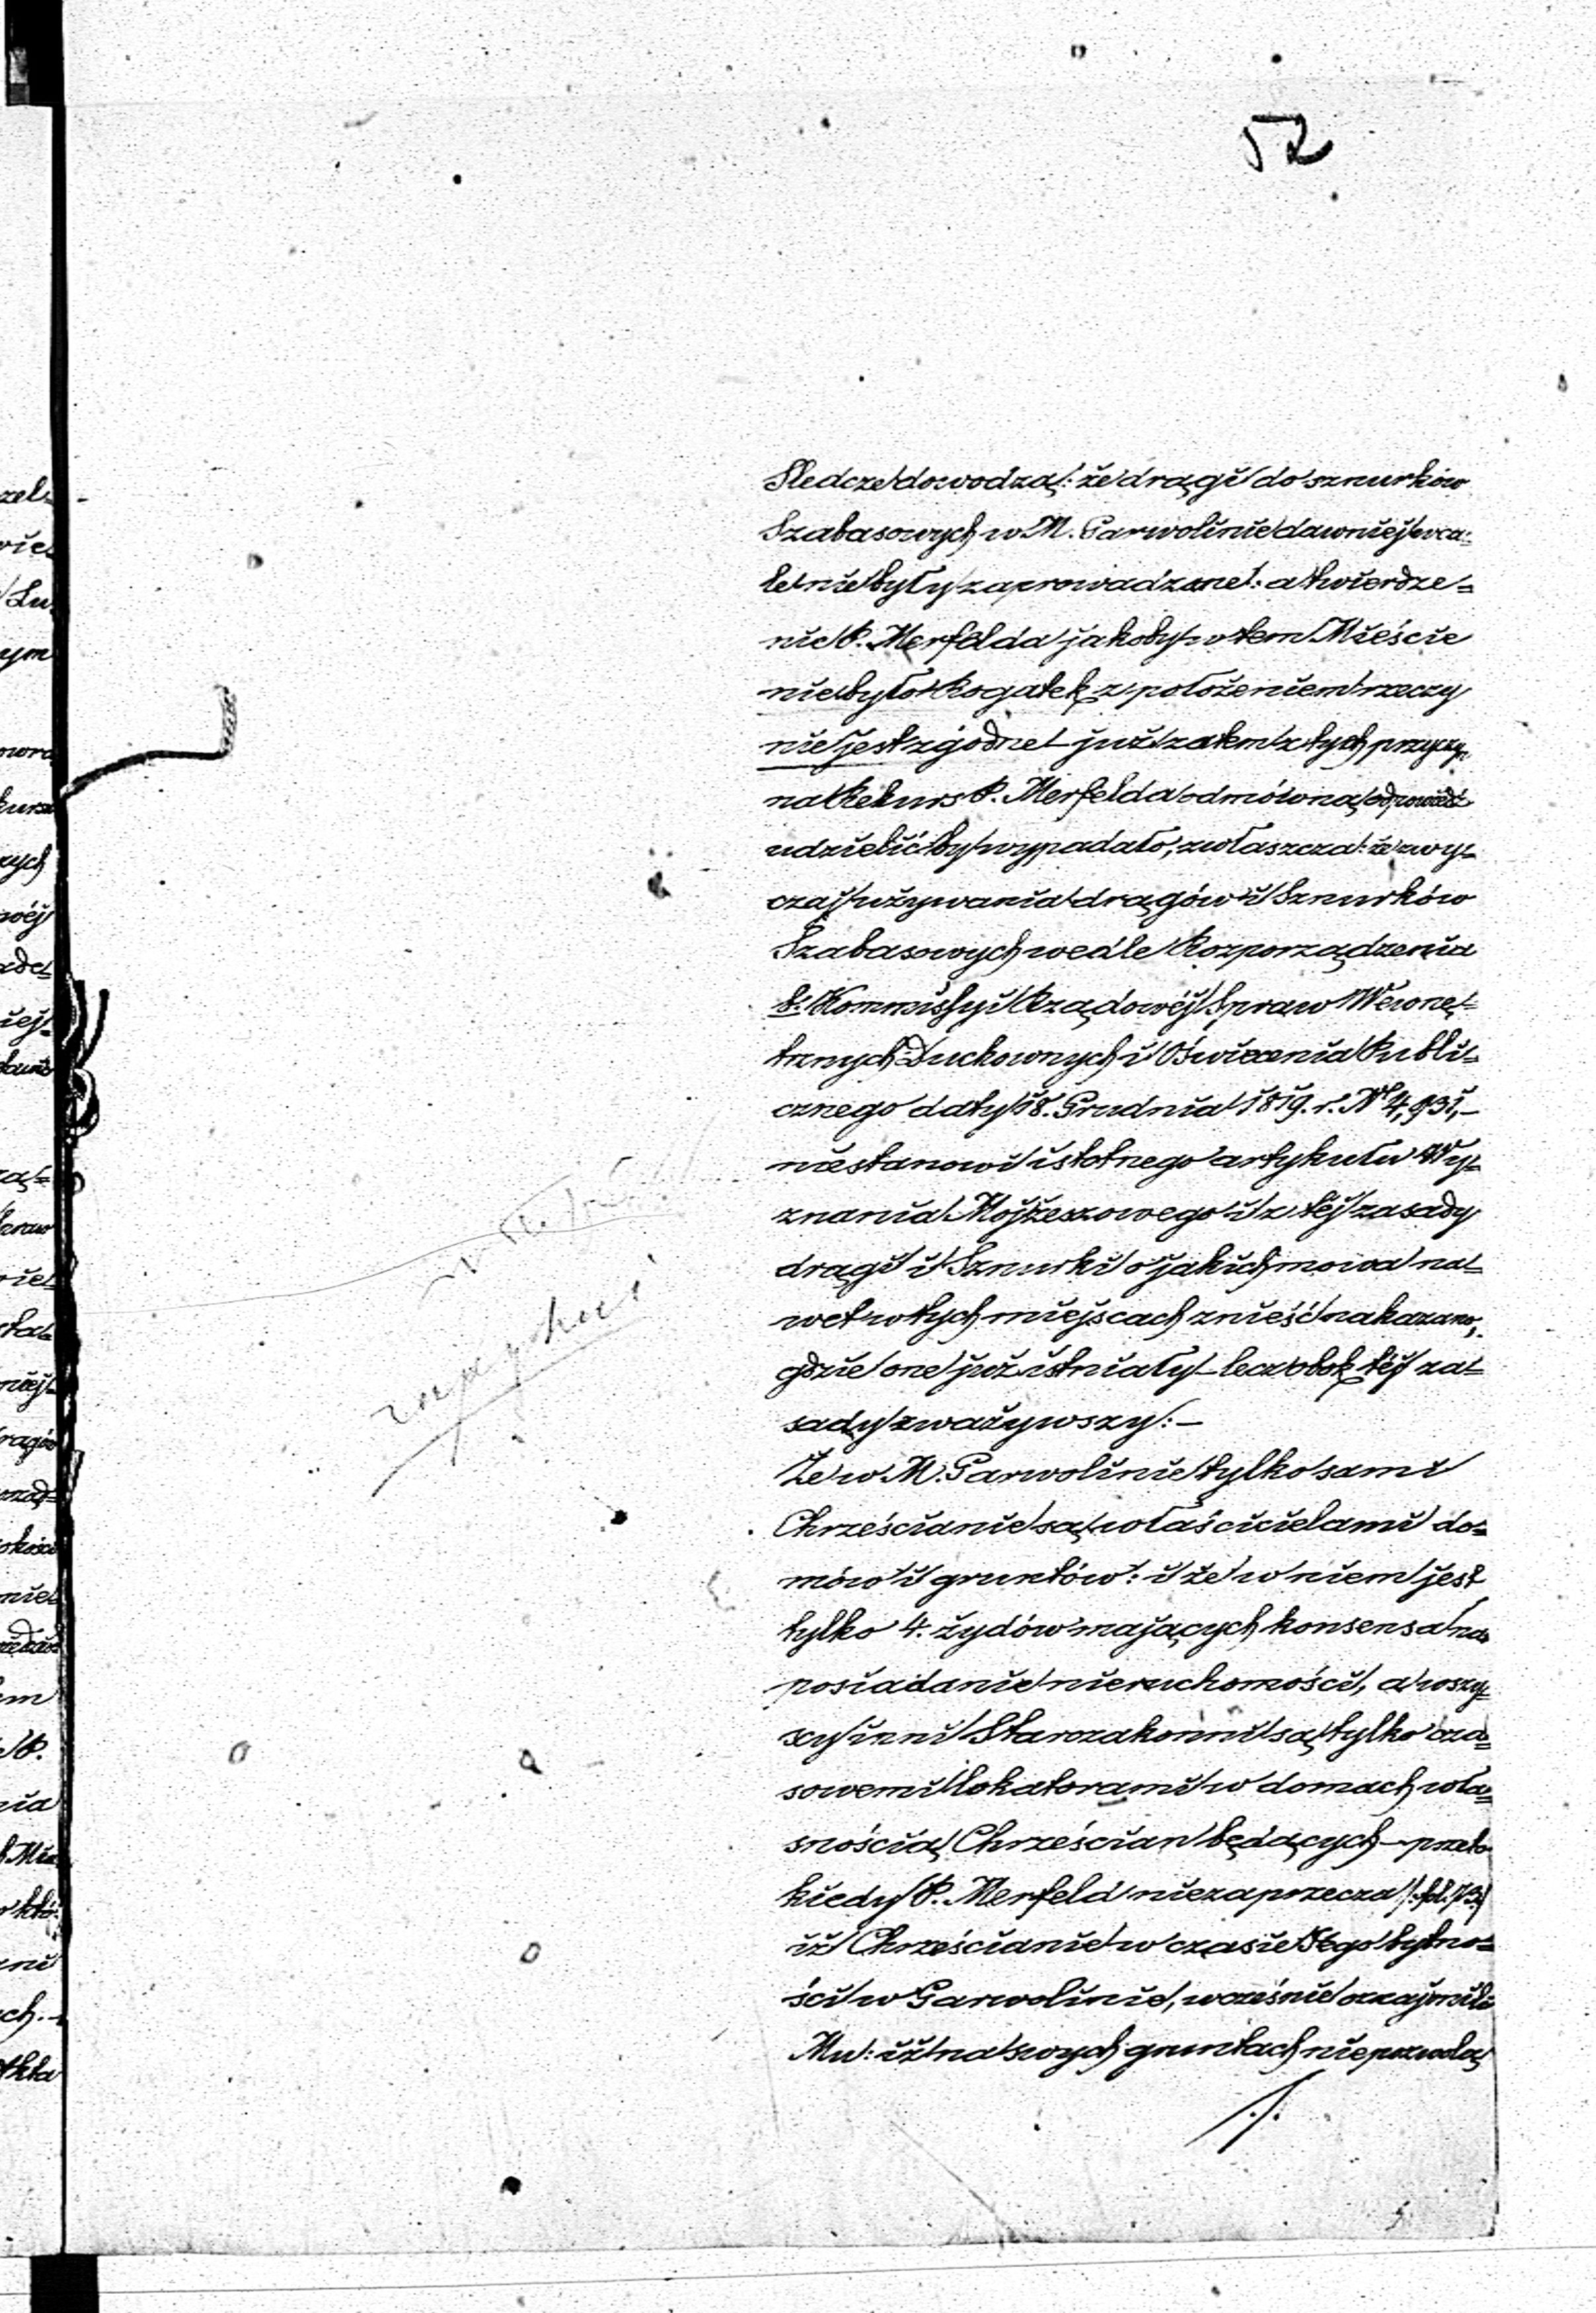 52
Sledcze dowodzą: że drągi do sznurków
Szabasowych w M. Garwolinie dawniej wca=
le nie były zaprowadzone: a twierdze=
nie P. Merfelda jakoby w tem Mieście
nie było Rogatek z położeniem rzeczy
nie jest zgodne – już zatem z tych przyczy=
na Rekurs P. Merfelda odmówną odpowiedź
udzielić by wypadało, zwłaszcza: że zwy=
czaj używania drągów i Sznurków
Szabasowych wedle Rozporządzenia
b. Kommissyi Rządowéj Spraw Wewnę=
trznych Duchownych i Oświecenia Publi=
cznego daty 18. Grudnia 1819. r. Nr 4,931, –
nie stanowi istotnego artykułu Wy=
znania Mojżeszowego i z téj zasady
drągi i Sznurki o jakich mowa na=
wet w tych miejscach znieść nakazano,
gdzie one już istniały – lecz obok téj za=
sady zważywszy: –
Że w M. Garwolinie tylko sami
Chrześcianie są właścicielami do=
mów i gruntów: i że w niem jest
tylko 4. żydów mających konsensa na
posiadanie nieruchomości, a wszy=
scy inni Starozakonni są tylko cza=
sowemi lokatorami w domach wła=
snością Chrześcian będących – przeto
kiedy P. Merfeld niezaprzecza /: fol. 73 :/
iż Chrześcianie w czasie Jego bytno=
ści w Garwolinie, wcześnie oznajmili
Mu: iż na swych gruntach nie pozwolą